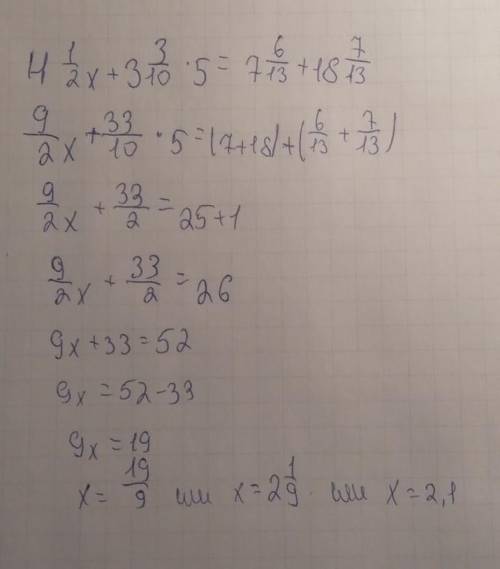 4 1/2 x + 3 3/10 · 5 = 7 6/13 + 18 7/13
9/2 x + 33/10 · 5 = (7+18) + (6/13 + 7/13)
9/2 x + 33/2 = 25+1
9/2 x + 33/2 = 26
9x + 33 = 52
9x = 52 - 33
9x = 19
x = 19/9 или x = 2 1/9 или x = 2,1